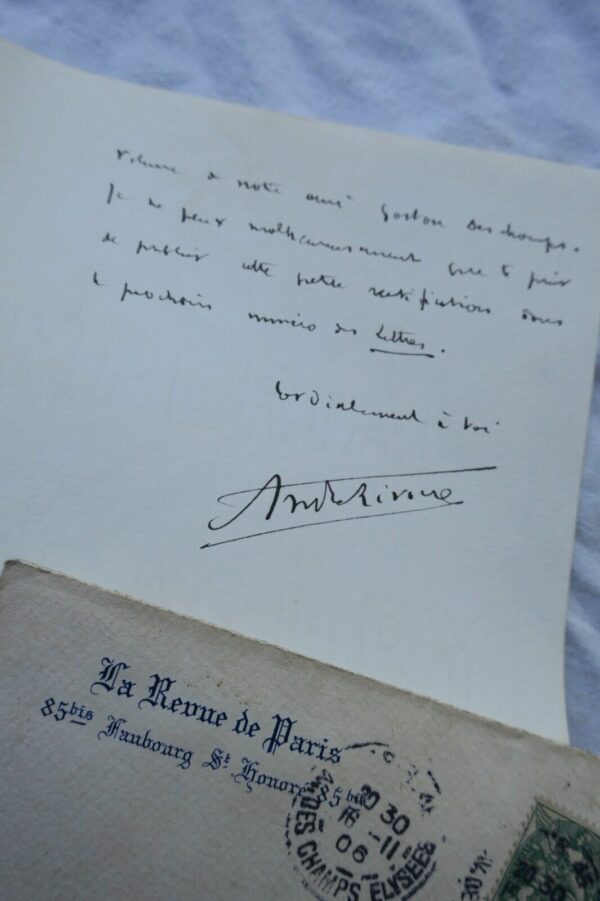 volume de notre ami Gaston Deschamps.
Je ne peux malheureusement que te prier
de publier cette petite rectification dans
le prochain numéro des Lettres.
Cordialement à toi
André Rivoire
La Revue de Paris
85bis Faubourg St Honoré 85bis
20 30
16 - 11
06
DES CHAMPS ELYSÉES